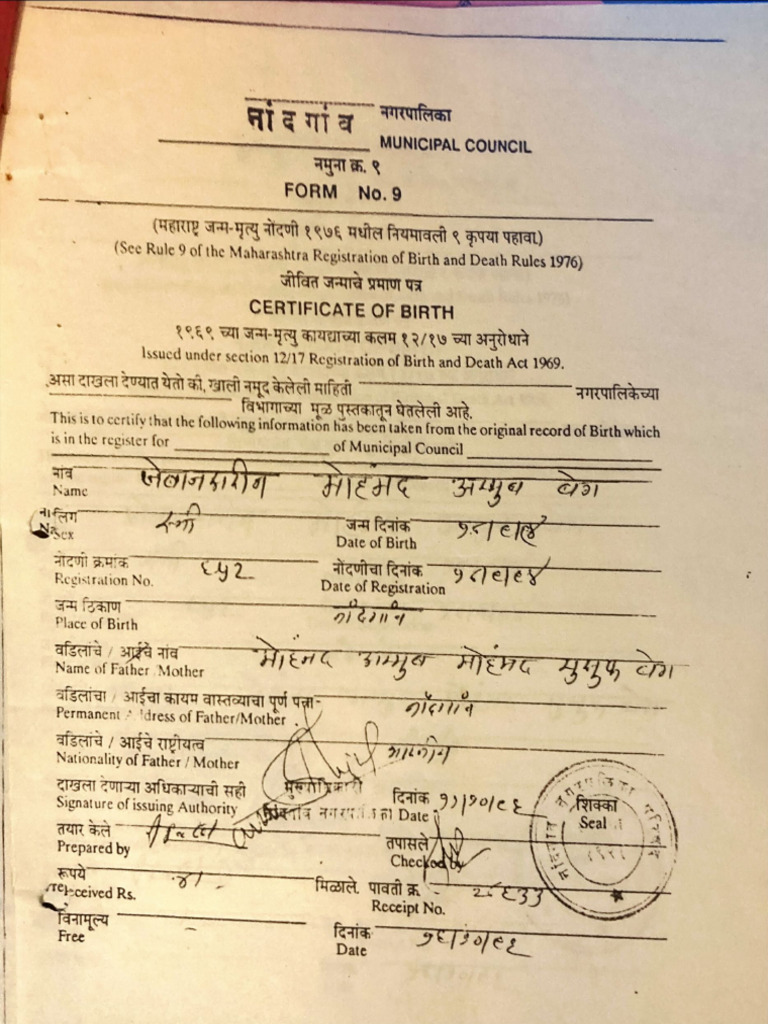 नांदगांव नगरपालिका
MUNICIPAL COUNCIL
नमुना क्र. ९
FORM No. 9
(महाराष्ट्र जन्म-मृत्यु नोंदणी १९७६ मधील नियमावली ९ कृपया पहावा.)
(See Rule 9 of the Maharashtra Registration of Birth and Death Rules 1976)
जीवित जन्माचे प्रमाण पत्र
CERTIFICATE OF BIRTH
१९६९ च्या जन्म-मृत्यु कायद्याच्या कलम १२/१७ च्या अनुरोधाने
Issued under section 12/17 Registration of Birth and Death Act 1969.
असा दाखला देण्यात येतो की, खाली नमूद केलेली माहिती नगरपालिकेच्या
विभागाच्या मूळ पुस्तकातून घेतलेली आहे.
This is to certify that the following information has been taken from the original record of Birth which
is in the register for of Municipal Council
नाव मोहंमद अय्युब बेग
Name
लिंग स्त्री जन्म दिनांक
Sex Date of Birth
नोंदणी क्रमांक ६५२ नोंदणीचा दिनांक
Registration No. Date of Registration
जन्म ठिकाण नांदगांव
Place of Birth
वडिलांचे / आईचे नांव मोहंमद अय्युब मोहंमद युसुफ बेग
Name of Father /Mother
वडिलांचा / आईचा कायम वास्तव्याचा पूर्ण पत्ता- नांदगांव
Permanent Address of Father/Mother
वडिलांचे / आईचे राष्ट्रीयत्व भारतीय
Nationality of Father / Mother
दाखला देणाऱ्या अधिकाऱ्याची सही मुख्याधिकारी दिनांक शिक्का
Signature of issuing Authority नगरपालिका Date Seal
तयार केले तपासले
Prepared by Checked by
रूपये मिळाले. पावती क्र.
Received Rs. Receipt No.
विनामूल्य दिनांक १६/१०/९६
Free Date